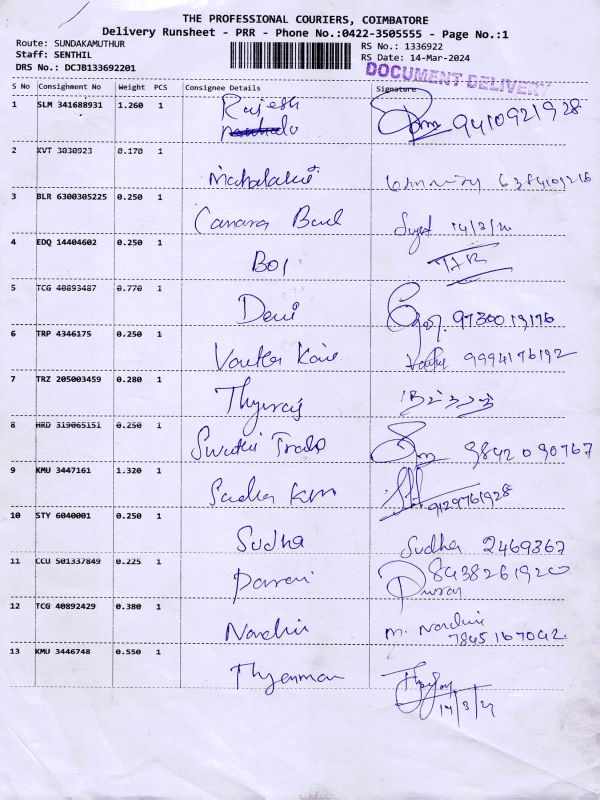 THE PROFESSIONAL COURIERS, COIMBATORE
Delivery Runsheet - PRR - Phone No.:0422-3505555 - Page No.:1
Route: SUNDAKAMUTHUR
RS No.: 1336922
Staff: SENTHIL
RS Date: 14-Mar-2024
DRS No.: DCJB133692201
DOCUMENT DELIVERY
S No Consignment No Weight PCS Consignee Details Signature
1 SLM 341688931 1.260 1 Rajesh
9410921928
2 KVT 3030923 0.170 1
6384109216
3 BLR 6300305225 0.250 1 Canara
4 EDQ 14404602 0.250 1 BOI
5 TCG 40893487 0.770 1 Devi
9730019176
6 TRP 4346175 0.250 1
9994176192
7 TRZ 205003459 0.280 1
8 HRD 319065151 0.250 1
9842090767
9 KMU 3447161 1.320 1
9129761928
10 STY 6040001 0.250 1 Sudha Sudha 2469367
11 CCU 501337849 0.225 1
12 TCG 40892429 0.380 1
7845167042
13 KMU 3446748 0.550 1